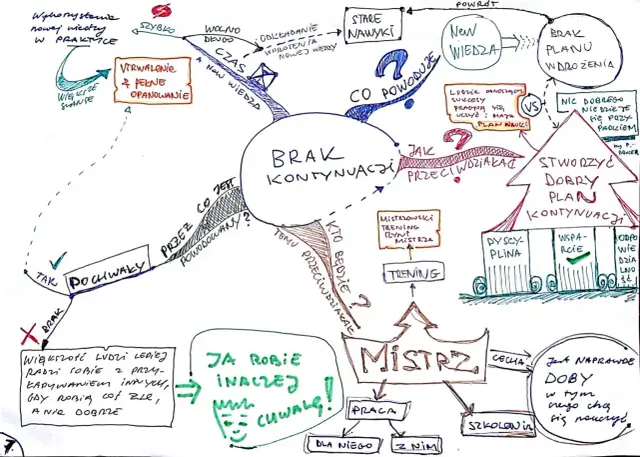 Wykorzystanie
nowej wiedzy
w PRAKTYCE
SZYBKO
WOLNO
DŁUGO
ODKŁADANIE
WDROŻENIA
NOWEJ WIEDZY
STARE
NAWYKI
POWRÓT
NOWA
WIEDZA
BRAK
PLANU
WDROŻENIA
WIĘKSZE
SZANSE
UTRWALENIE
+ PEŁNE
OPANOWANIE
CZAS
A NOWA WIEDZA
CO POWODUJE
?
LUDZIE
SUKCESY
PRAGNĄ SIĘ
UCZYĆ I MAJĄ
PLAN NAUKI
VS
NIC DOBREGO
NIE DZIEJE
SIĘ PRZY-
PADKIEM
BRAK
KONTYNUACJI
JAK
PRZECIWDZIAŁAĆ
?
STWORZYĆ
DOBRY
PLAN
KONTYNUACJI
DYSCY-
PLINA
WSPA-
RCIE
ODPO
WIE
DZIA
LNO
ŚĆ
PRZEZ CO JEST
POWODOWANY?
KTO BĘDZIE
TEMU PRZECIWDZIAŁAĆ
?
MISTRZOWSKI
TRENING
CZYNI
MISTRZA
TRENING
TAK
POCHWAŁY
BRAK
WIĘKSZOŚĆ LUDZI LEPIEJ
RADZI SOBIE Z PRZY-
ŁAPYWANIEM INNYCH,
GDY ROBIĄ COŚ ŹLE,
A NIE DOBRZE
JA ROBIĘ
INACZEJ
CHWALĘ!
MISTRZ
CECHA
Jest NAPRAWDĘ
DOBY
w tym
czego chcą
się nauczyć
PRACA
DLA NIEGO
Z NIM
SZKOLENIA
7.